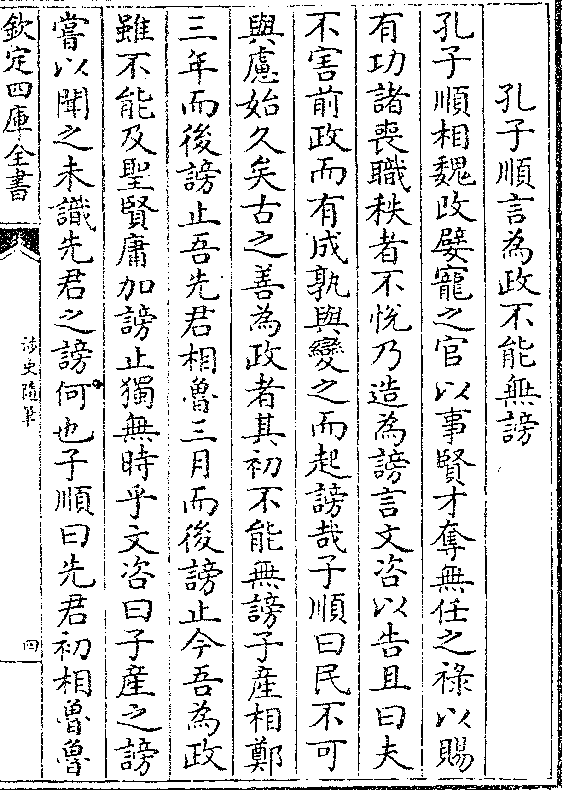 孔子順言為政不能無謗
孔子順相魏改嬖寵之官以事賢才奪無任之祿以賜
有功諸喪職秩者不悅乃造為謗言文咨以告且曰夫
不害前政而有成孰與變之而起謗哉子順曰民不可
與慮始久矣古之善為政者其初不能無謗子產相鄭
三年而後謗止吾先君相魯三月而後謗止今吾為政
雖不能及聖賢庸加謗止獨無時乎文咨曰子產之謗
嘗以聞之未識先君之謗何也子順曰先君初相魯魯
欽定四庫全書
涉史隨筆
四